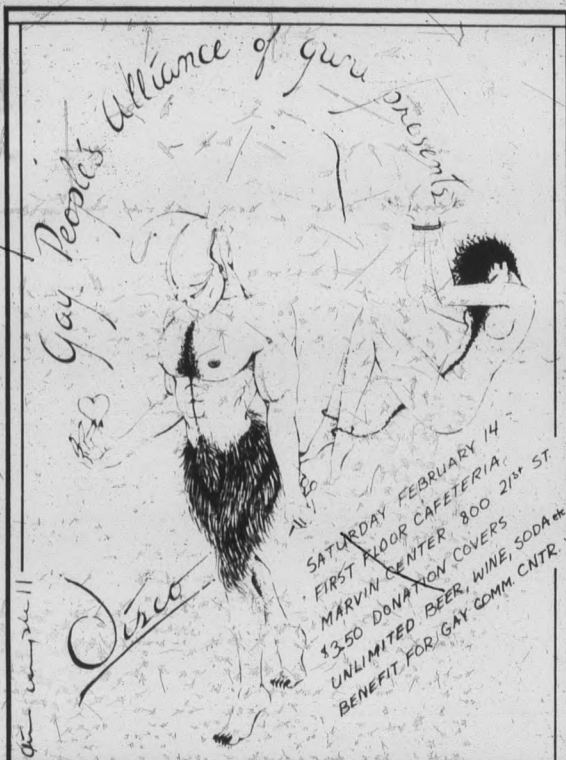 Gay People's Alliance of gwu presents
Disco
SATURDAY FEBRUARY 14
FIRST FLOOR CAFETERIA
MARVIN CENTER 800 21st ST
$3.50 DONATION COVERS
UNLIMITED BEER, WINE, SODA etc
BENEFIT FOR GAY COMM. CNTR.